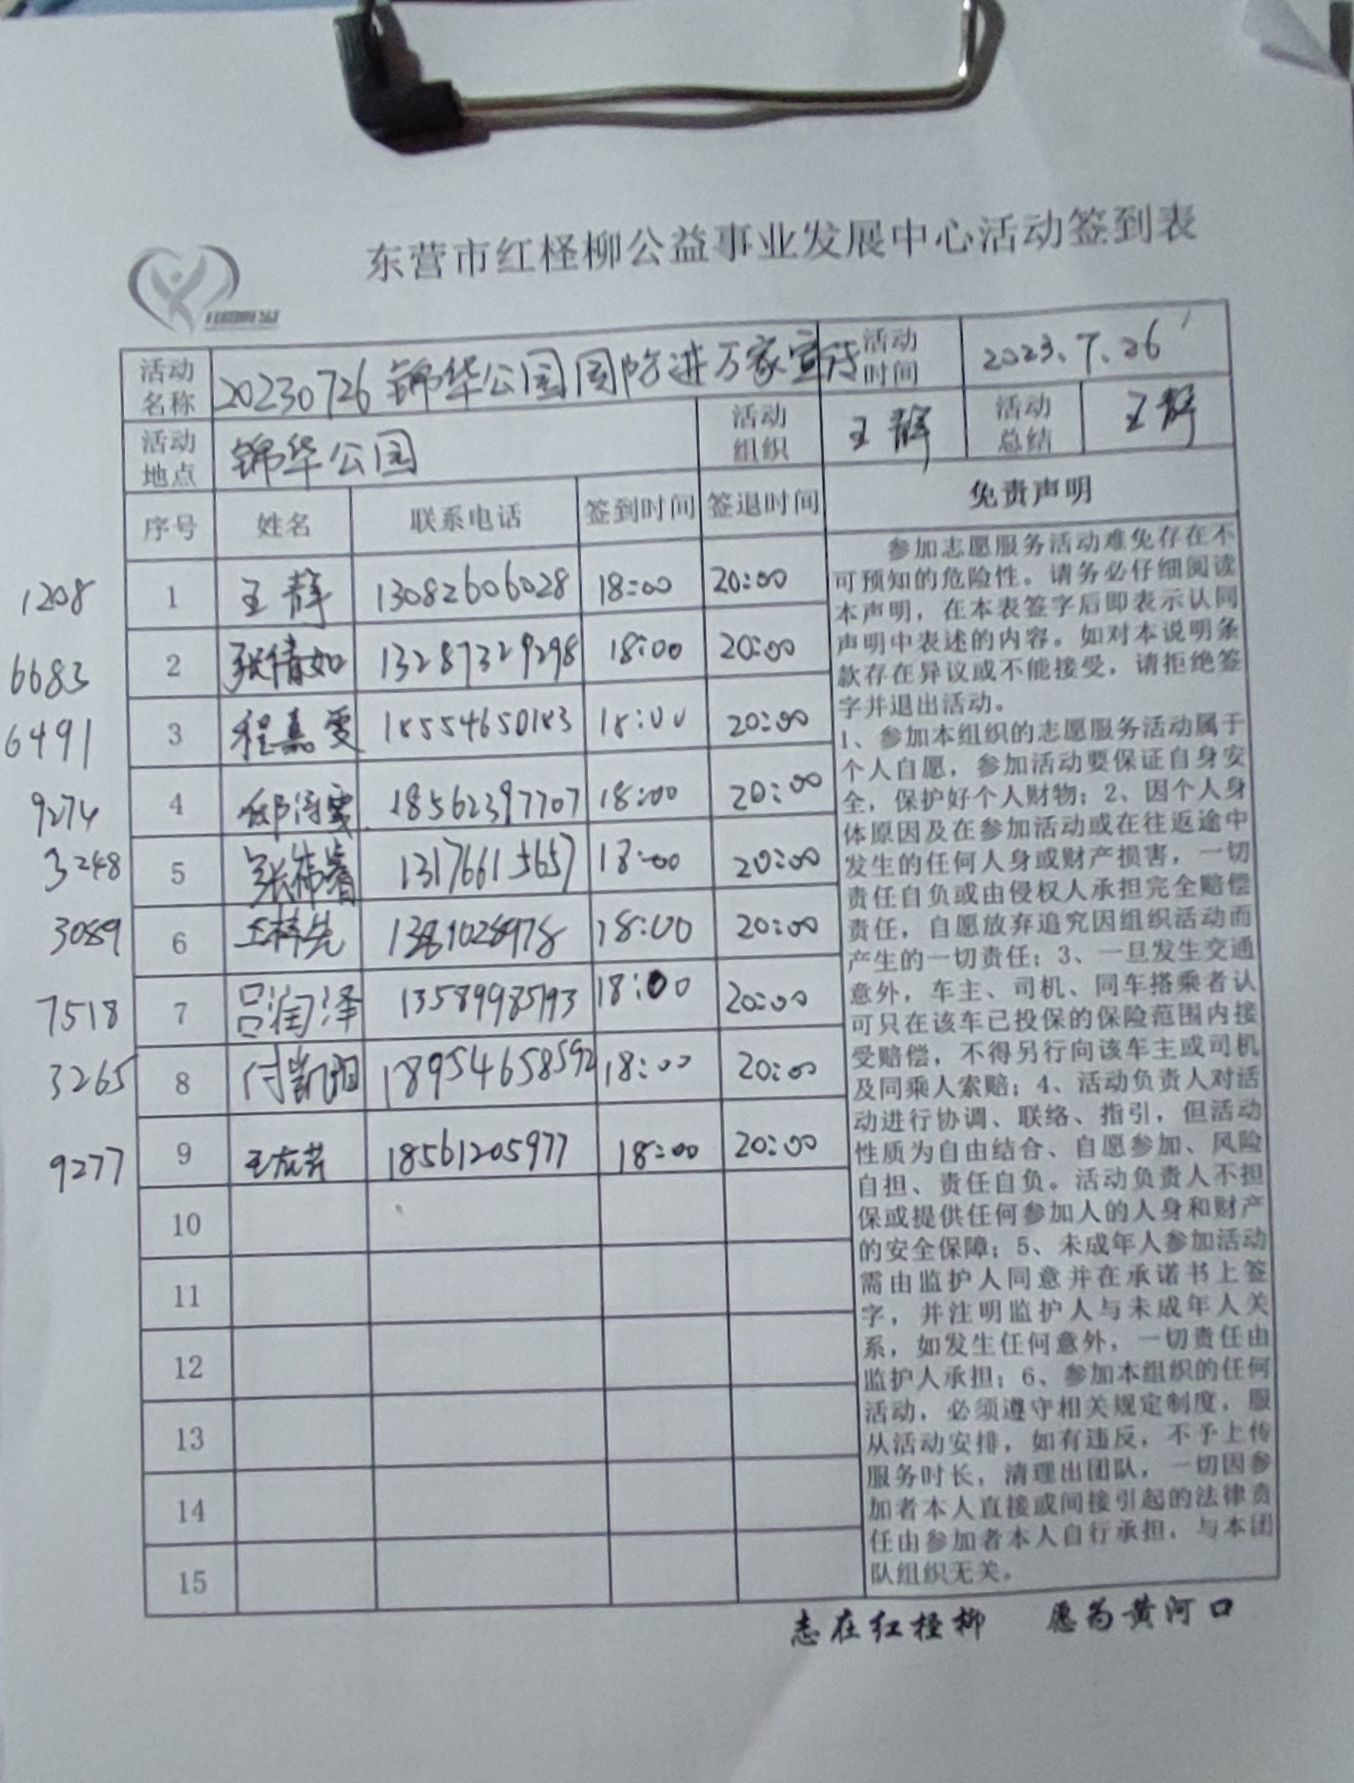 东营市红柽柳公益事业发展中心活动签到表
活动名称 20230726锦华公园国防进万家宣传 活动时间 2023.7.26
活动地点 锦华公园 活动组织 王静 活动总结 王静
序号 姓名 联系电话 签到时间 签退时间 免责声明
1208 1 王静 13082606028 18:00 20:00
6683 2 张倩如 13287329298 18:00 20:00
6491 3 程嘉雯 18554650183 18:00 20:00
9274 4 18562397707 18:00 20:00
3248 5 13176615657 18:00 20:00
3089 6 18:00 20:00
7518 7 吕润泽 13589985793 18:00 20:00
3265 8 付凯阳 18954658592 18:00 20:00
9277 9 18561205977 18:00 20:00
10
11
12
13
14
15
参加志愿服务活动难免存在不
可预知的危险性。请务必仔细阅读
本声明，在本表签字后即表示认同
声明中表述的内容。如对本说明条
款存在异议或不能接受，请拒绝签
字并退出活动。
1、参加本组织的志愿服务活动属于
个人自愿，参加活动要保证自身安
全，保护好个人财物；2、因个人身
体原因及在参加活动或在往返途中
发生的任何人身或财产损害，一切
责任自负或由侵权人承担完全赔偿
责任，自愿放弃追究因组织活动而
产生的一切责任；3、一旦发生交通
意外，车主、司机、同车搭乘者认
可只在该车已投保的保险范围内接
受赔偿，不得另行向该车主或司机
及同乘人索赔；4、活动负责人对活
动进行协调、联络、指引，但活动
性质为自由结合、自愿参加、风险
自担、责任自负。活动负责人不担
保或提供任何参加人的人身和财产
的安全保障；5、未成年人参加活动
需由监护人同意并在承诺书上签
字，并注明监护人与未成年人关
系，如发生任何意外，一切责任由
监护人承担；6、参加本组织的任何
活动，必须遵守相关规定制度，服
从活动安排，如有违反，不予上传
服务时长，清理出团队，一切因参
加者本人直接或间接引起的法律责
任由参加者本人自行承担，与本团
队组织无关。
志在红柽柳 愿为黄河口